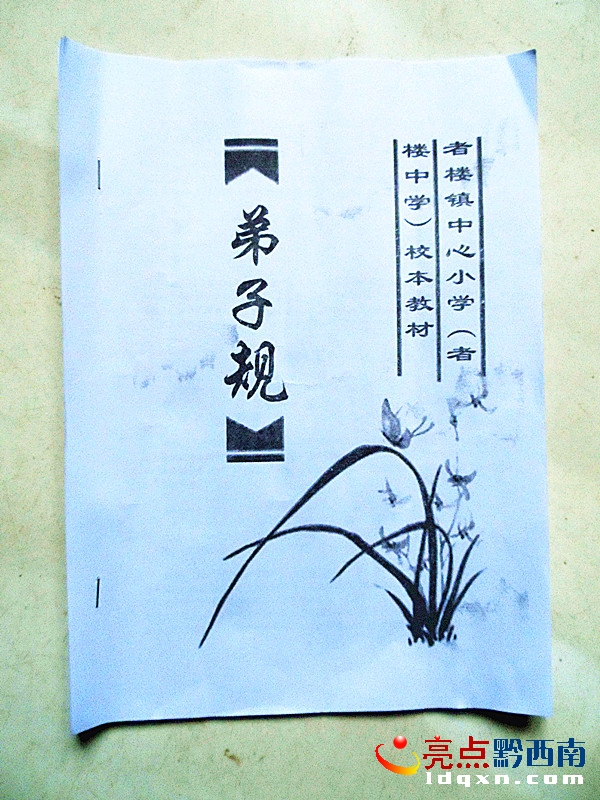 者楼镇中心小学（者
楼中学）校本教材
弟子规
亮点黔西南
ldqxn.com